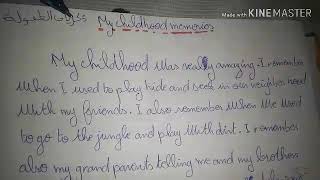 ذكريات الطفولة My childhood memories
Made with KINEMASTER
My childhood was really amazing. I remember
when I used to play hide and seek in our neighbor hood
with my friends. I also remember when we used
to go to the jungle and play with dirt. I remember
also my grand parents telling me and my brothers